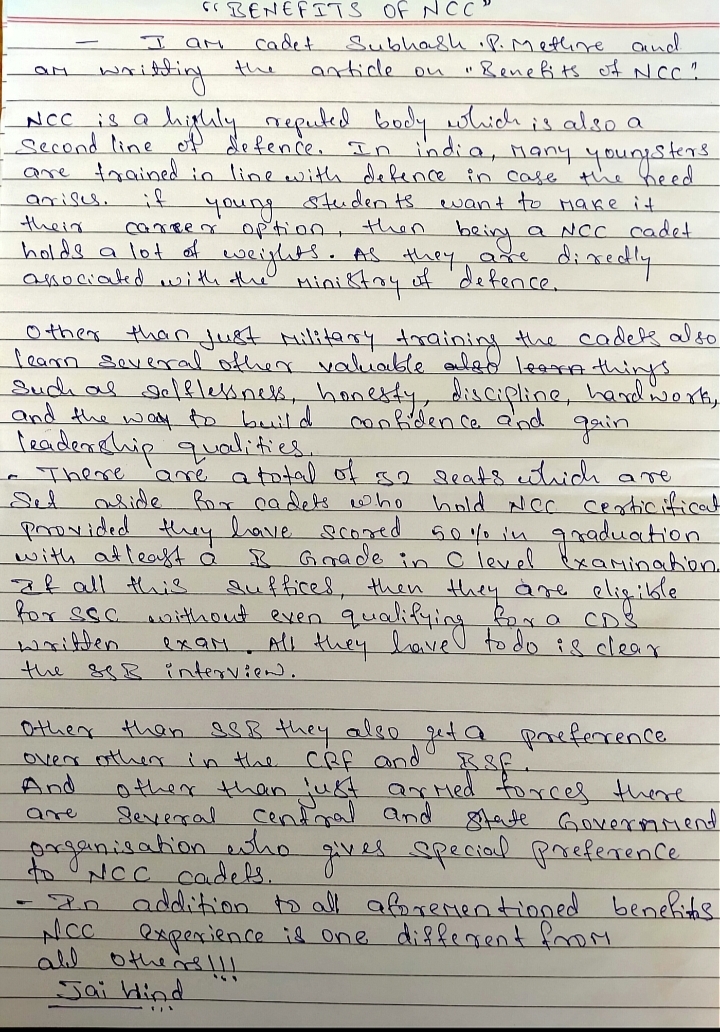 "BENEFITS OF NCC"
- I am cadet Subhash .P. Methre and
am writting the article on "Benefits of NCC".
NCC is a highly reputed body which is also a
Second line of defence. In india, many youngsters
are trained in line with defence in case the need
arises. if young students want to make it
their career option, then being a NCC cadet
holds a lot of weights. As they are directly
associated with the ministry of defence.
Other than just military training the cadets also
learn several other valuable also learn things
such as selflessness, honesty, discipline, hardwork,
and the way to build confidence and gain
leadership qualities.
- There are a total of 32 seats which are
set aside for cadets who hold NCC certificat
provided they have scored 50% in graduation
with atleast a B Grade in C level Examination.
If all this suffices, then they are eligible
for SSC without even qualifying for a CDS
written exam. All they have to do is clear
the SSB interview.
Other than SSB they also get a preference
over other in the CRF and BSF.
And other than just armed forces there
are several central and state Governmend
organisation who gives special preference
to NCC cadets.
- In addition to all aforementioned benefits
NCC experience is one different from
all others!!!
Jai Hind